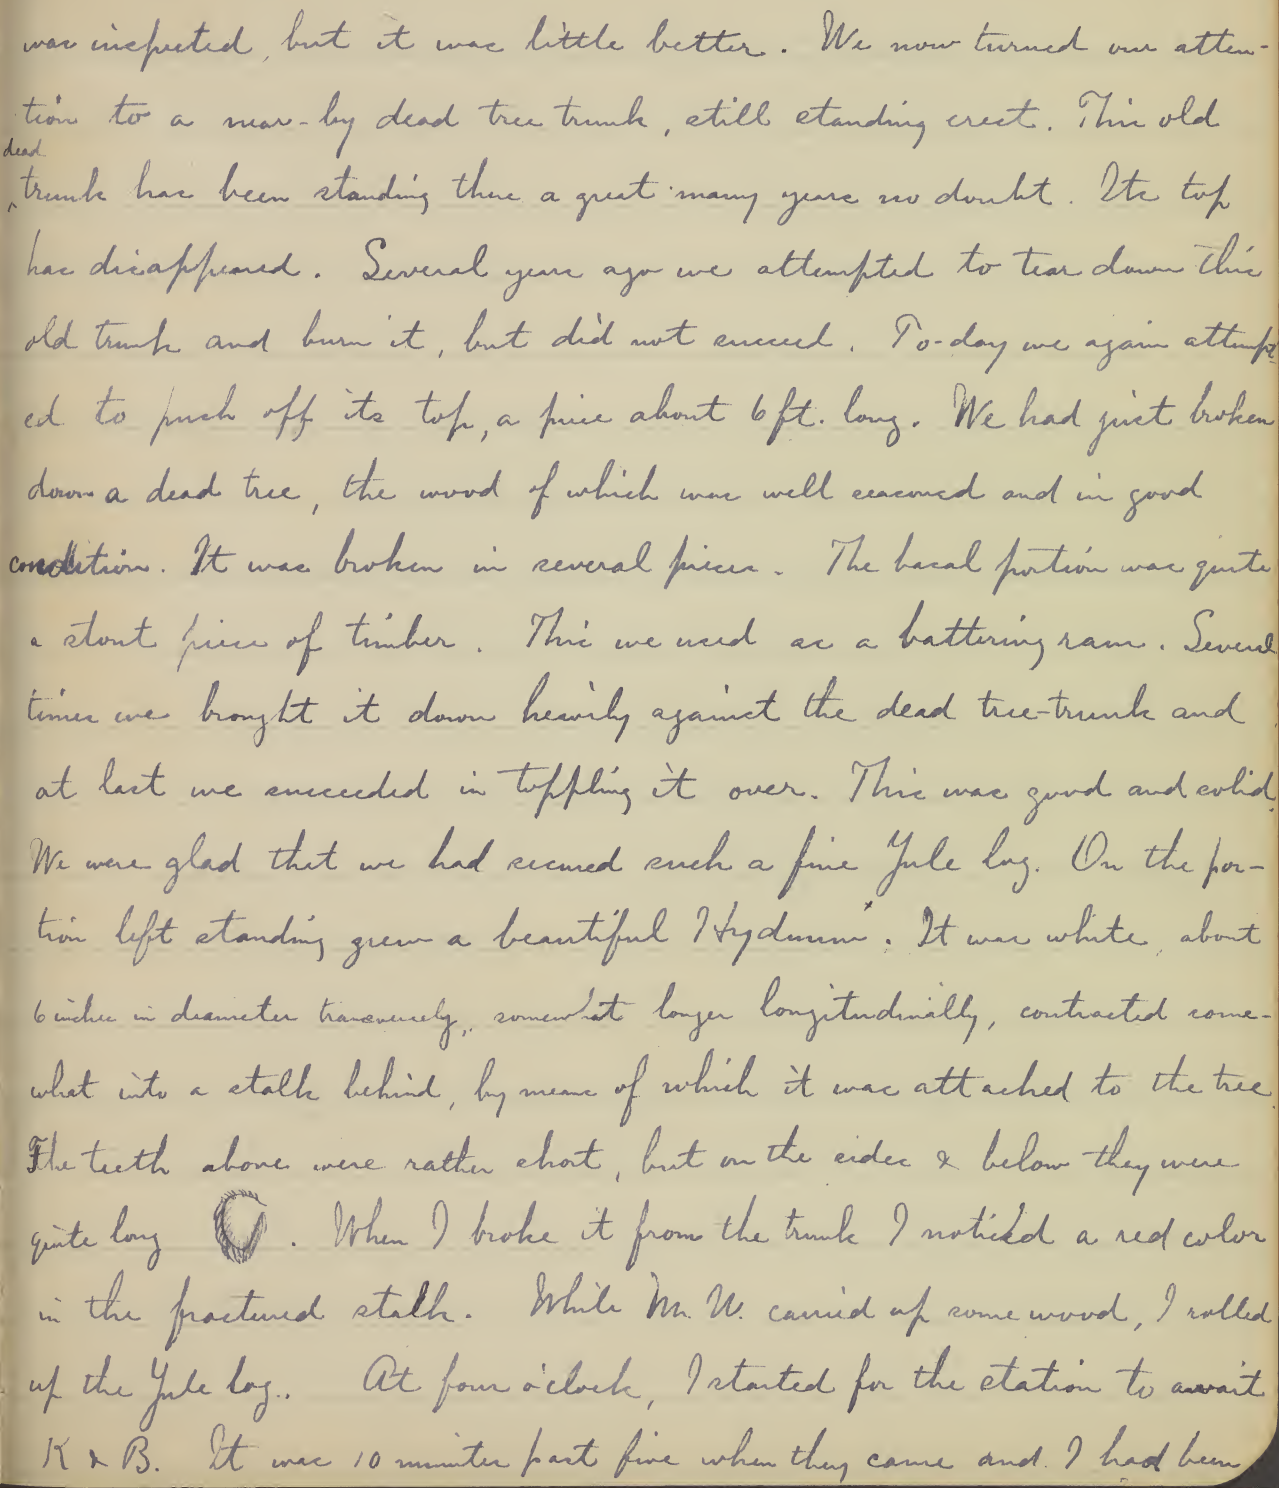 was inspected, but it was little better. We now turned our atten-
tion to a near-by dead tree trunk, still standing erect. This old
dead
trunk has been standing there a great many years no doubt. Its top
has disappeared. Several years ago we attempted to tear down this
old trunk and burn it, but did not succeed. To-day we again attempt-
ed to push off its top, a piece about 6 ft. long. We had just broken
down a dead tree, the wood of which was well seasoned and in good
condition. It was broken in several pieces. The basal portion was quite
a stout piece of timber. This we used as a battering ram. Several
times we brought it down heavily against the dead tree-trunk and
at last we succeeded in toppling it over. This was good and solid.
We were glad that we had secured such a fine Yule log. On the por-
tion left standing grew a beautiful Hydnum x. It was white, about
6 inches in diameter transversely, somewhat longer longitudinally, contracted some-
what into a stalk behind, by means of which it was attached to the tree.
The teeth above were rather short, but on the sides & below they were
quite long. When I broke it from the trunk I noticed a red color
in the fractured stalk. While Mr. W. carried up some wood, I rolled
up the Yule log. At four o'clock, I started for the station to await
K & B. It was 10 minutes past five when they came and I had been